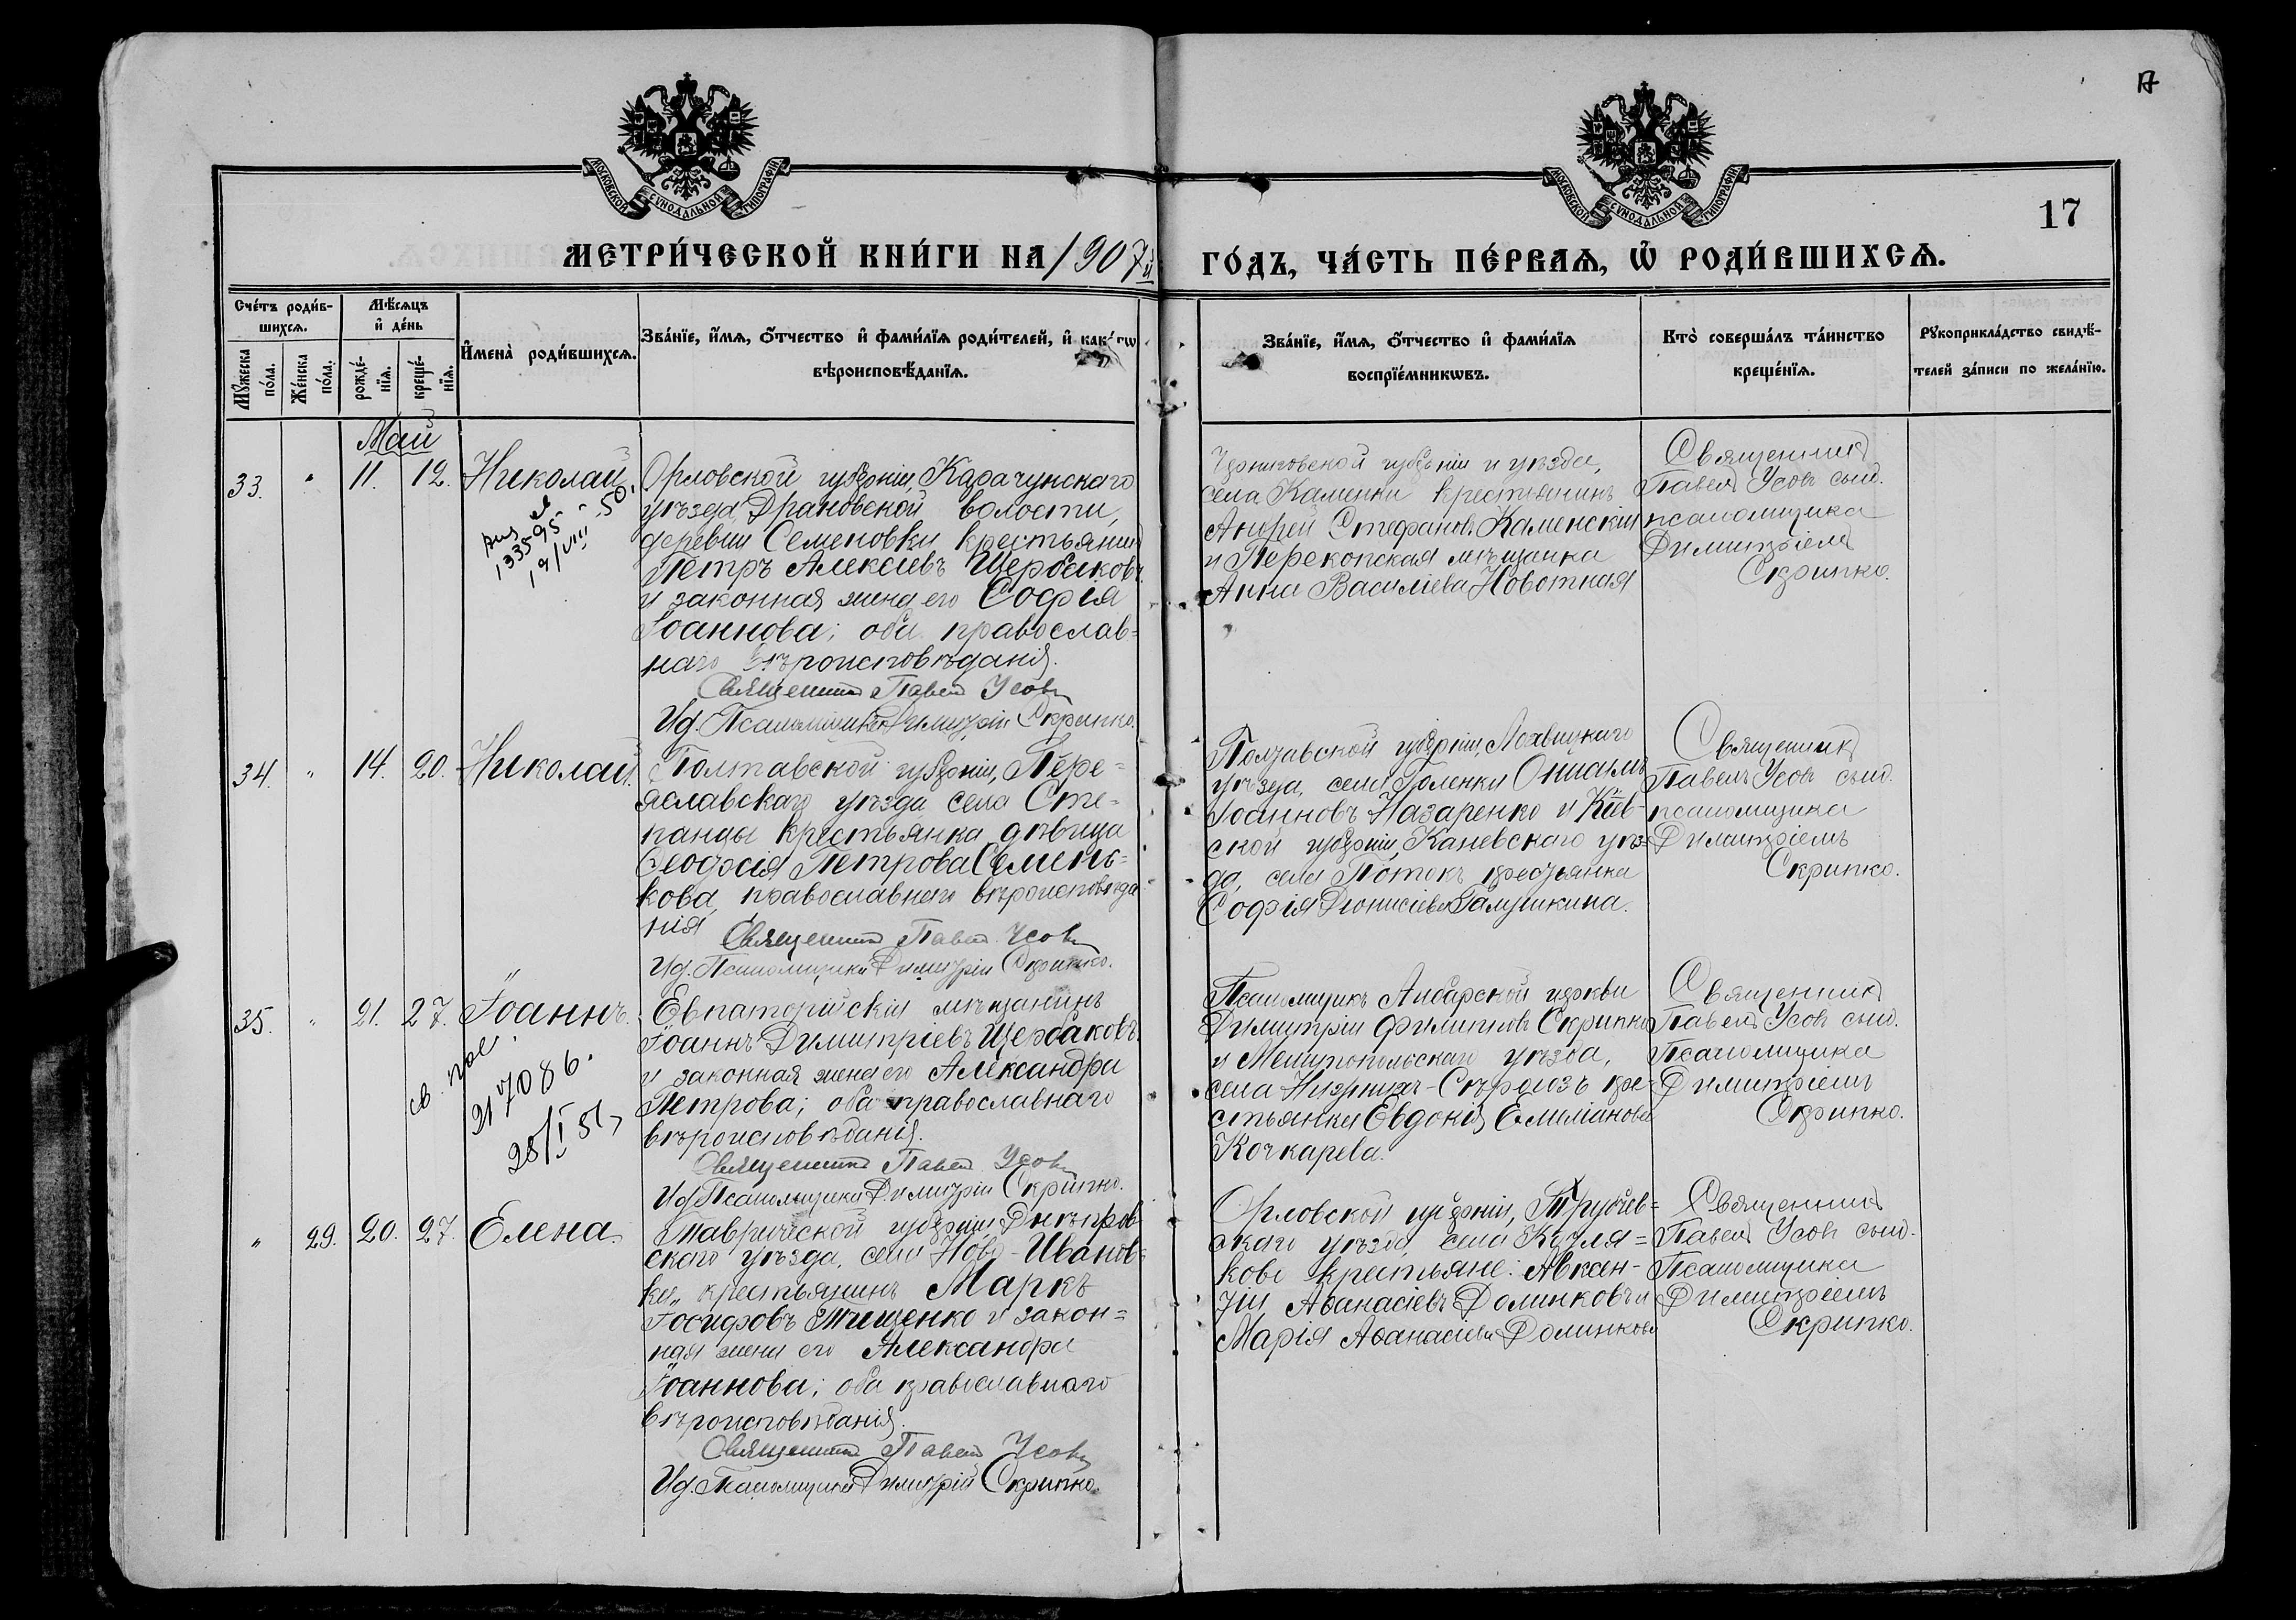 17
МОСКОВСКОЙ СУНОДАЛЬНОЙ ТИПОГРАФІИ
МОСКОВСКОЙ СУНОДАЛЬНОЙ ТИПОГРАФІИ
17
МЕТРИ́ЧЕСКОЙ КНИ́ГИ НА 1907й
ГО́ДЪ, ЧА́СТЬ ПЕ́РВАѦ, Ѡ҆ РОДИ́ВШИХСѦ.
Сче́тъ роди́в-
шихсѧ.
Мꙋ́жеска по́ла.
Же́нска по́ла.
Мѣ́сѧцъ
и҆ де́нь
рожде́-
нїѧ.
креще́-
нїѧ.
И҆мена̀ роди́вшихсѧ.
Зва́нїе, и҆́мѧ, ѻ҆́тчество и҆ фами́лїѧ роди́телей, и҆ како́гѡ
вѣроисповѣ́данїѧ.
Зва́нїе, и҆́мѧ, ѻ҆́тчество и҆ фами́лїѧ
воспрїе́мникѡвъ.
Кто̀ соверша́лъ та́инство
креще́нїѧ.
Рꙋкоприкла́дство свидѣ́-
телей за́писи по жела́нїю.
Май
33. " 11. 12. Николай
133595
12/VIII-50.
Орловской губерніи, Карачунскаго
уѣзда, Драновской волости,
деревни Семеновки крестьянинъ
Петръ Алексіевъ Щербаковъ
и законная жена его Софія
Іоаннова; оба православ=
наго вѣроисповѣданія.
Священникъ Павелъ Усовъ
И.д. Псаломщика Димитрій Скрипко.
Черниговской губерніи и уѣзда,
села Каменки крестьянинъ
Андрей Стефановъ Каменскій
и Перекопская мѣщанка
Анна Василіева Новотная
Священникъ
Павелъ Усовъ съ и.д.
псаломщика
Димитріемъ
Скрипко.
34. " 14. 20. Николай.
Полтавской губерніи, Пере=
яславскаго уѣзда, села Сте=
панцы крестьянка дѣвица
Ѳеодосія Петрова Семень=
кова, православнаго вѣроисповѣда
нія
Священникъ Павелъ Усовъ
И.д. Псаломщика Димитрій Скрипко.
Полтавской губерніи,
уѣзда, села Голенки Онисимъ
Іоанновъ Назаренко и Кіев-
ской губерніи, Каневскаго уѣз=
да, села Потокъ крестьянка
Софія Діонисіева Галушкина.
Священникъ
Павелъ Усовъ съ и.д.
псаломщика
Димитріемъ
Скрипко.
35. " 21. 27. Іоаннъ.
св.
217086.
28/I 51
Евпаторійскій мѣщанинъ
Іоаннъ Димитріевъ Щербаковъ
и законная жена его Александра
Петрова; оба православнаго
вѣроисповѣданія.
Священникъ Павелъ Усовъ
И.д. Псаломщика Димитрій Скрипко.
Псаломщикъ Анбарской церкви
Димитрій Филипповъ Скрипко
и Мелитопольскаго уѣзда,
села Нижнихъ-Сѣрогозъ кре-
стьянка Евдокія Емиліанова
Кочкарева.
Священникъ
Павелъ Усовъ съ и.д.
Псаломщика
Димитріемъ
Скрипко.
" 29. 20. 27. Елена.
Таврической губерніи, Днѣпров
скаго уѣзда, села Ново-Иванов=
ки, крестьянинъ Маркъ
Іосифовъ Тищенко и закон=
ная жена его Александра
Іоаннова; оба православнаго
вѣроисповѣданія.
Священникъ Павелъ Усовъ
И.д. Псаломщика Димитрій Скрипко.
Орловской губерніи, Трубчев=
скаго уѣзда, села
крестьяне: Авксен-
тій Аѳанасіевъ Долинковъ и
Марія Аѳанасіева Долинкова
Священникъ
Павелъ Усовъ съ и.д.
Псаломщика
Димитріемъ
Скрипко.